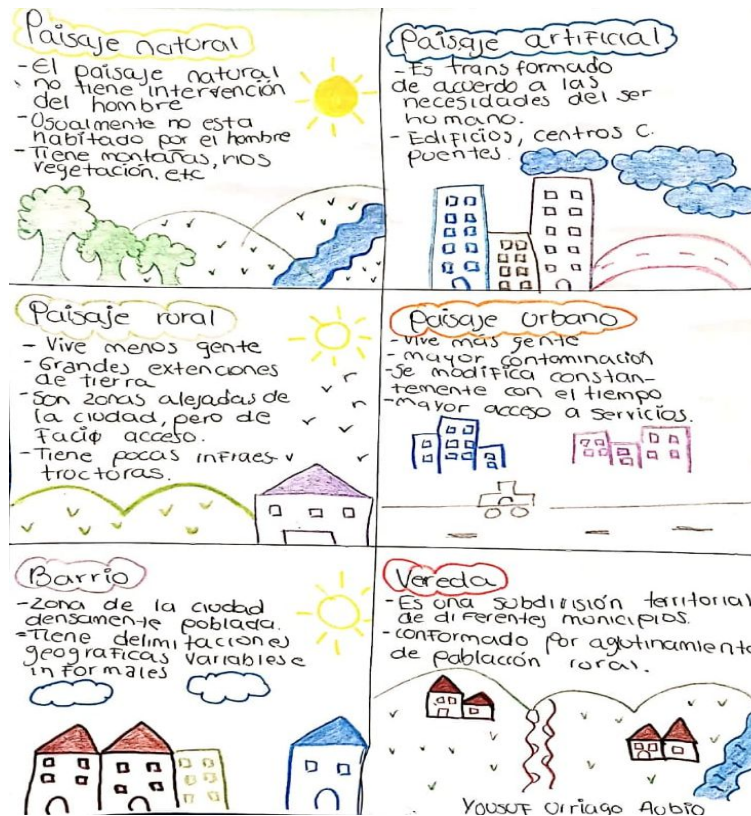 Paisaje natural
- El paisaje natural
no tiene intervención
del hombre
- Usualmente no esta
habitado por el hombre
- Tiene montañas, rios
vegetación, etc
Paisaje artificial
- Es transformado
de acuerdo a las
necesidades del ser
humano.
- Edificios, centros C.
puentes.
Paisaje rural
- Vive menos gente
- Grandes extenciones
de tierra
- Son zonas alejadas de
la ciudad, pero de
facil acceso.
- Tiene pocas infraes
tructuras.
Paisaje urbano
- Vive más gente
- mayor contaminación
- Se modifica constan-
temente con el tiempo
- mayor acceso a servicios.
Barrio
- Zona de la ciudad
densamente poblada.
- Tiene delimitaciones
geograficas variables e
informales
Vereda
- Es una subdivisión territorial
de diferentes municipios.
- conformado por aglutinamiento
de población rural.
Yousuf Urriago Rubio